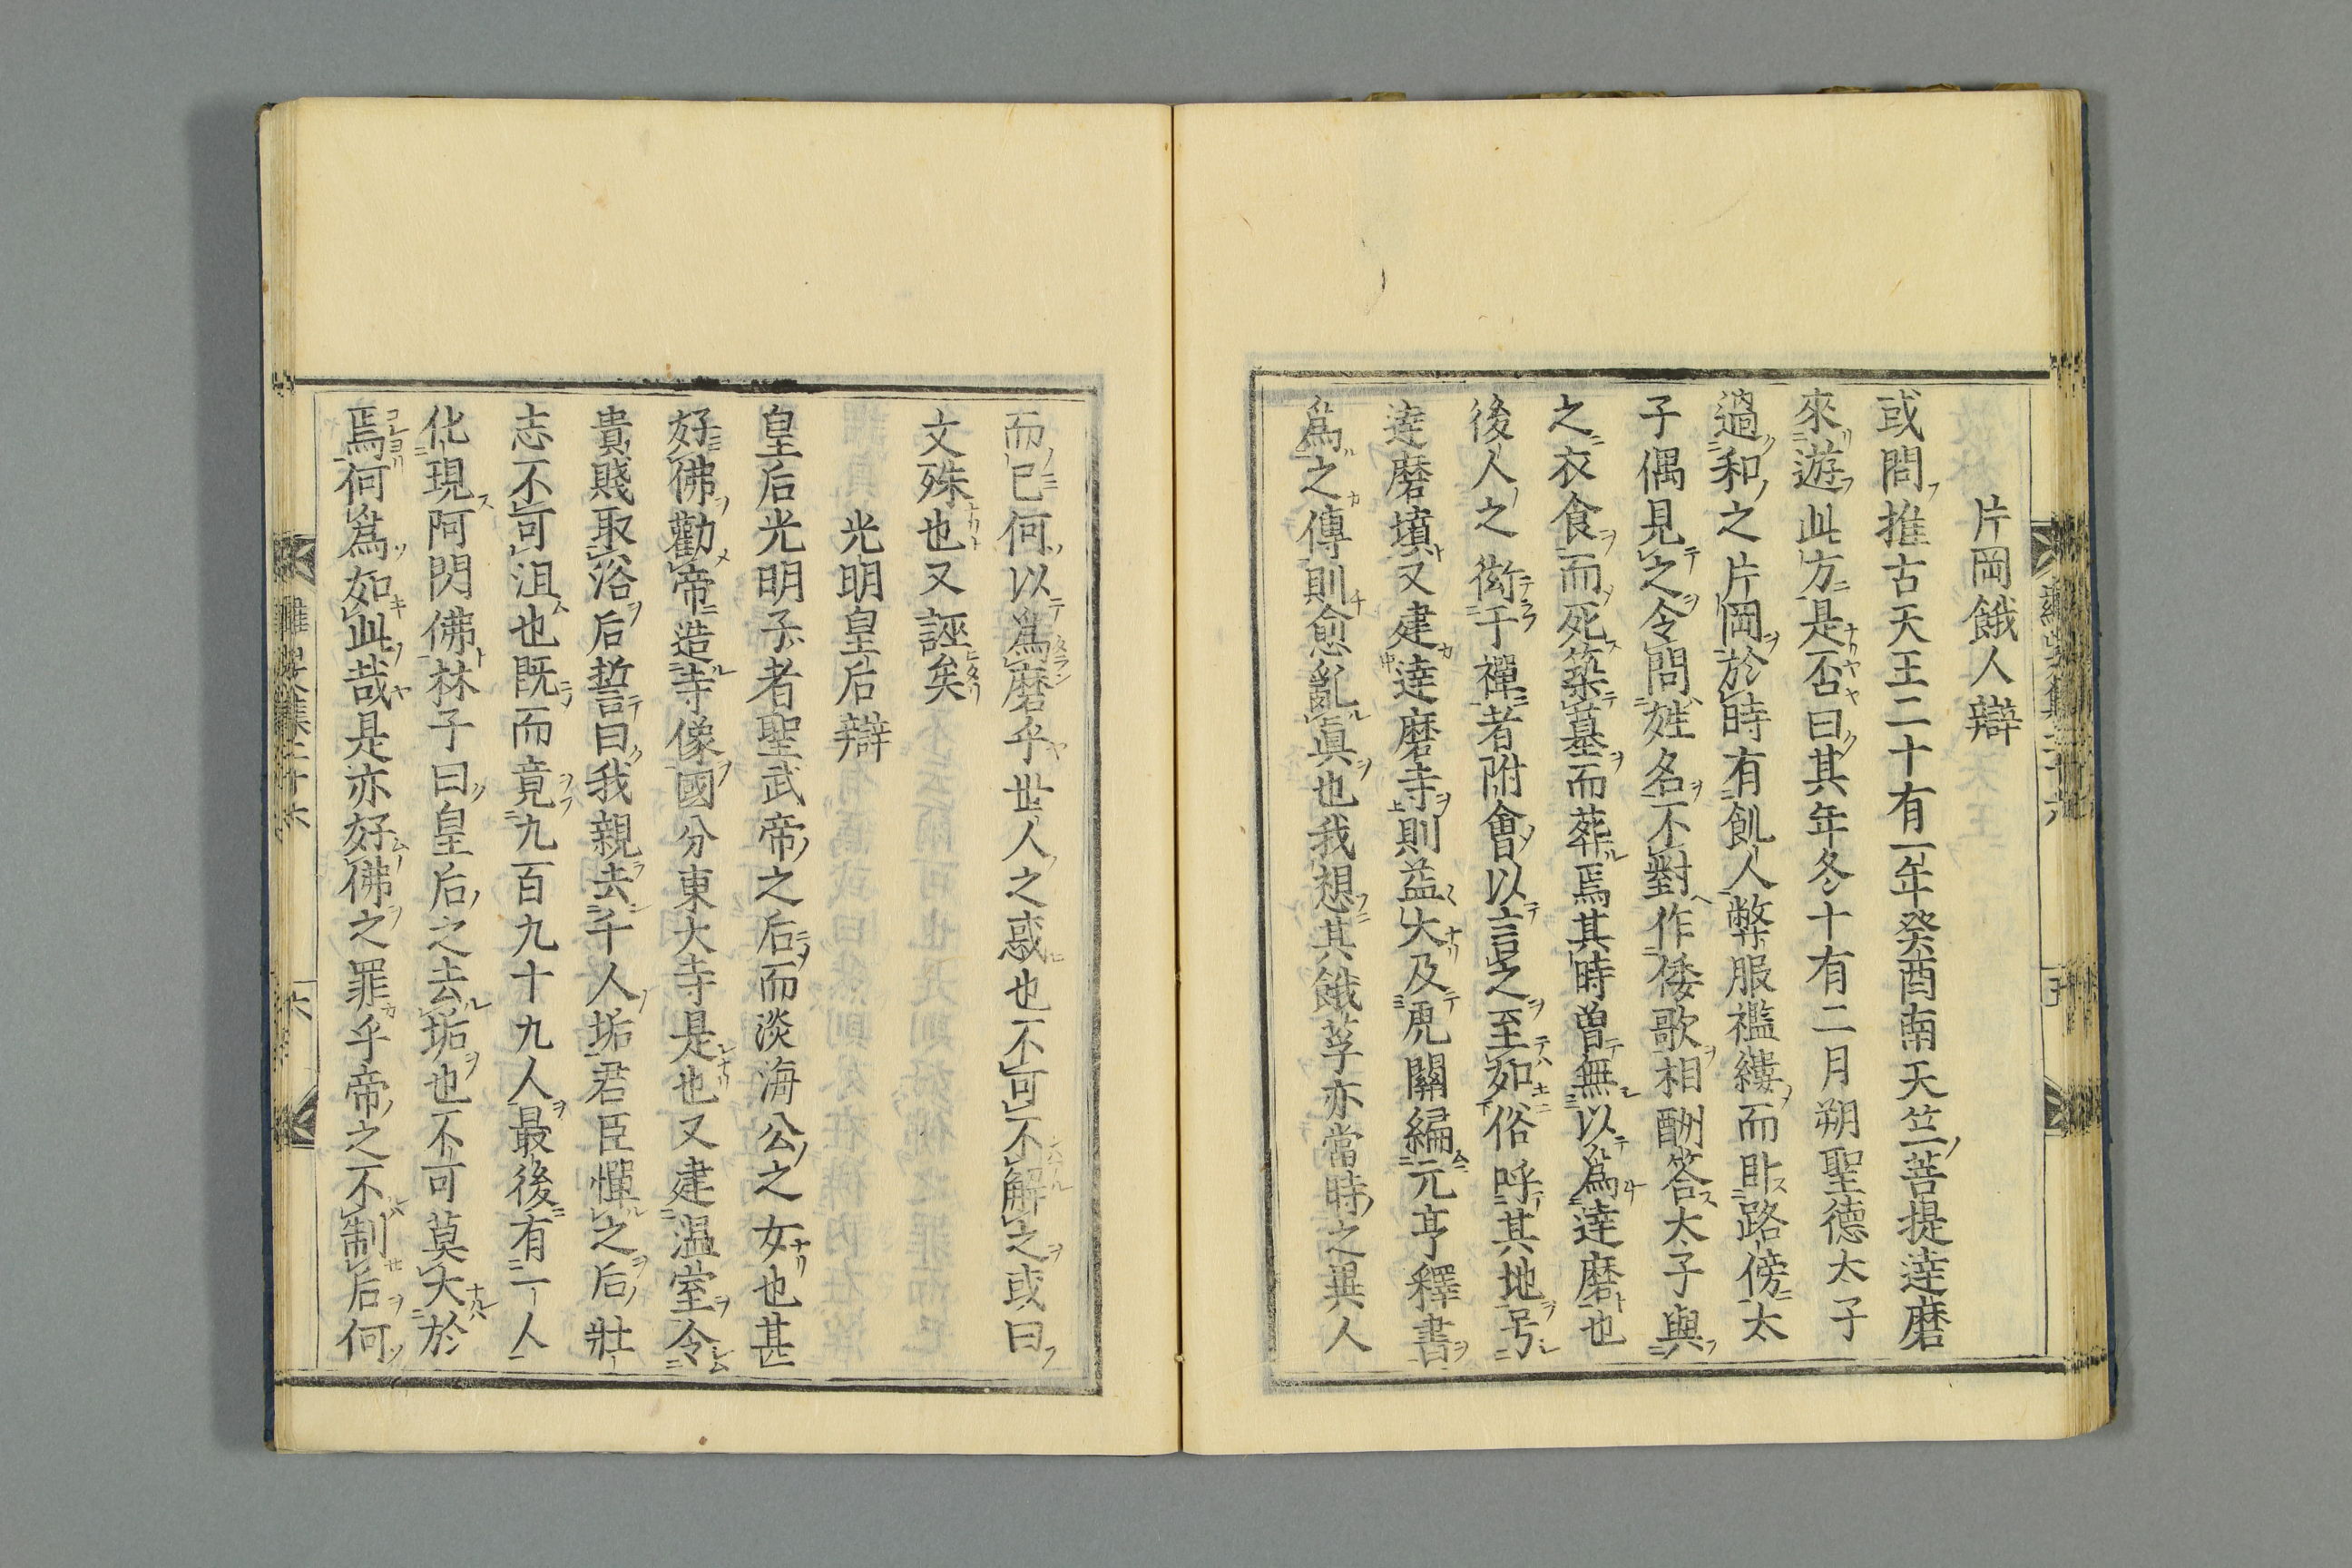 片岡餓人辯
或問推古天王二十有一年癸酉南天竺菩提達磨
來遊此方是否曰其年冬十有二月朔聖德太子
過和之片岡於時有飢人弊服襤褸而臥路傍太
子偶見之令問姓名不對作倭歌相酬答太子與
之衣食而死築墓而葬焉其時曾無以爲達磨也
後人之衒于禪者附會以言之至如俗呼其地号
達磨墳又建達磨寺則益大及虎關編元亨釋書
爲之傳則愈亂眞也我想其餓莩亦當時之異人
而已何以爲磨乎世人之惑也不可不解之或曰
文殊也又誣矣
光明皇后辯
皇后光明子者聖武帝之后而淡海公之女也甚
好佛勸帝造寺像國分東大寺是也又建温室令
貴賤取浴后誓曰我親去千人垢君臣憚之后壯
志不可沮也既而竟九百九十九人最後有一人
化現阿閦佛林子曰皇后之去垢也不可莫大於
焉何爲如此哉是亦好佛之罪乎帝之不制后何